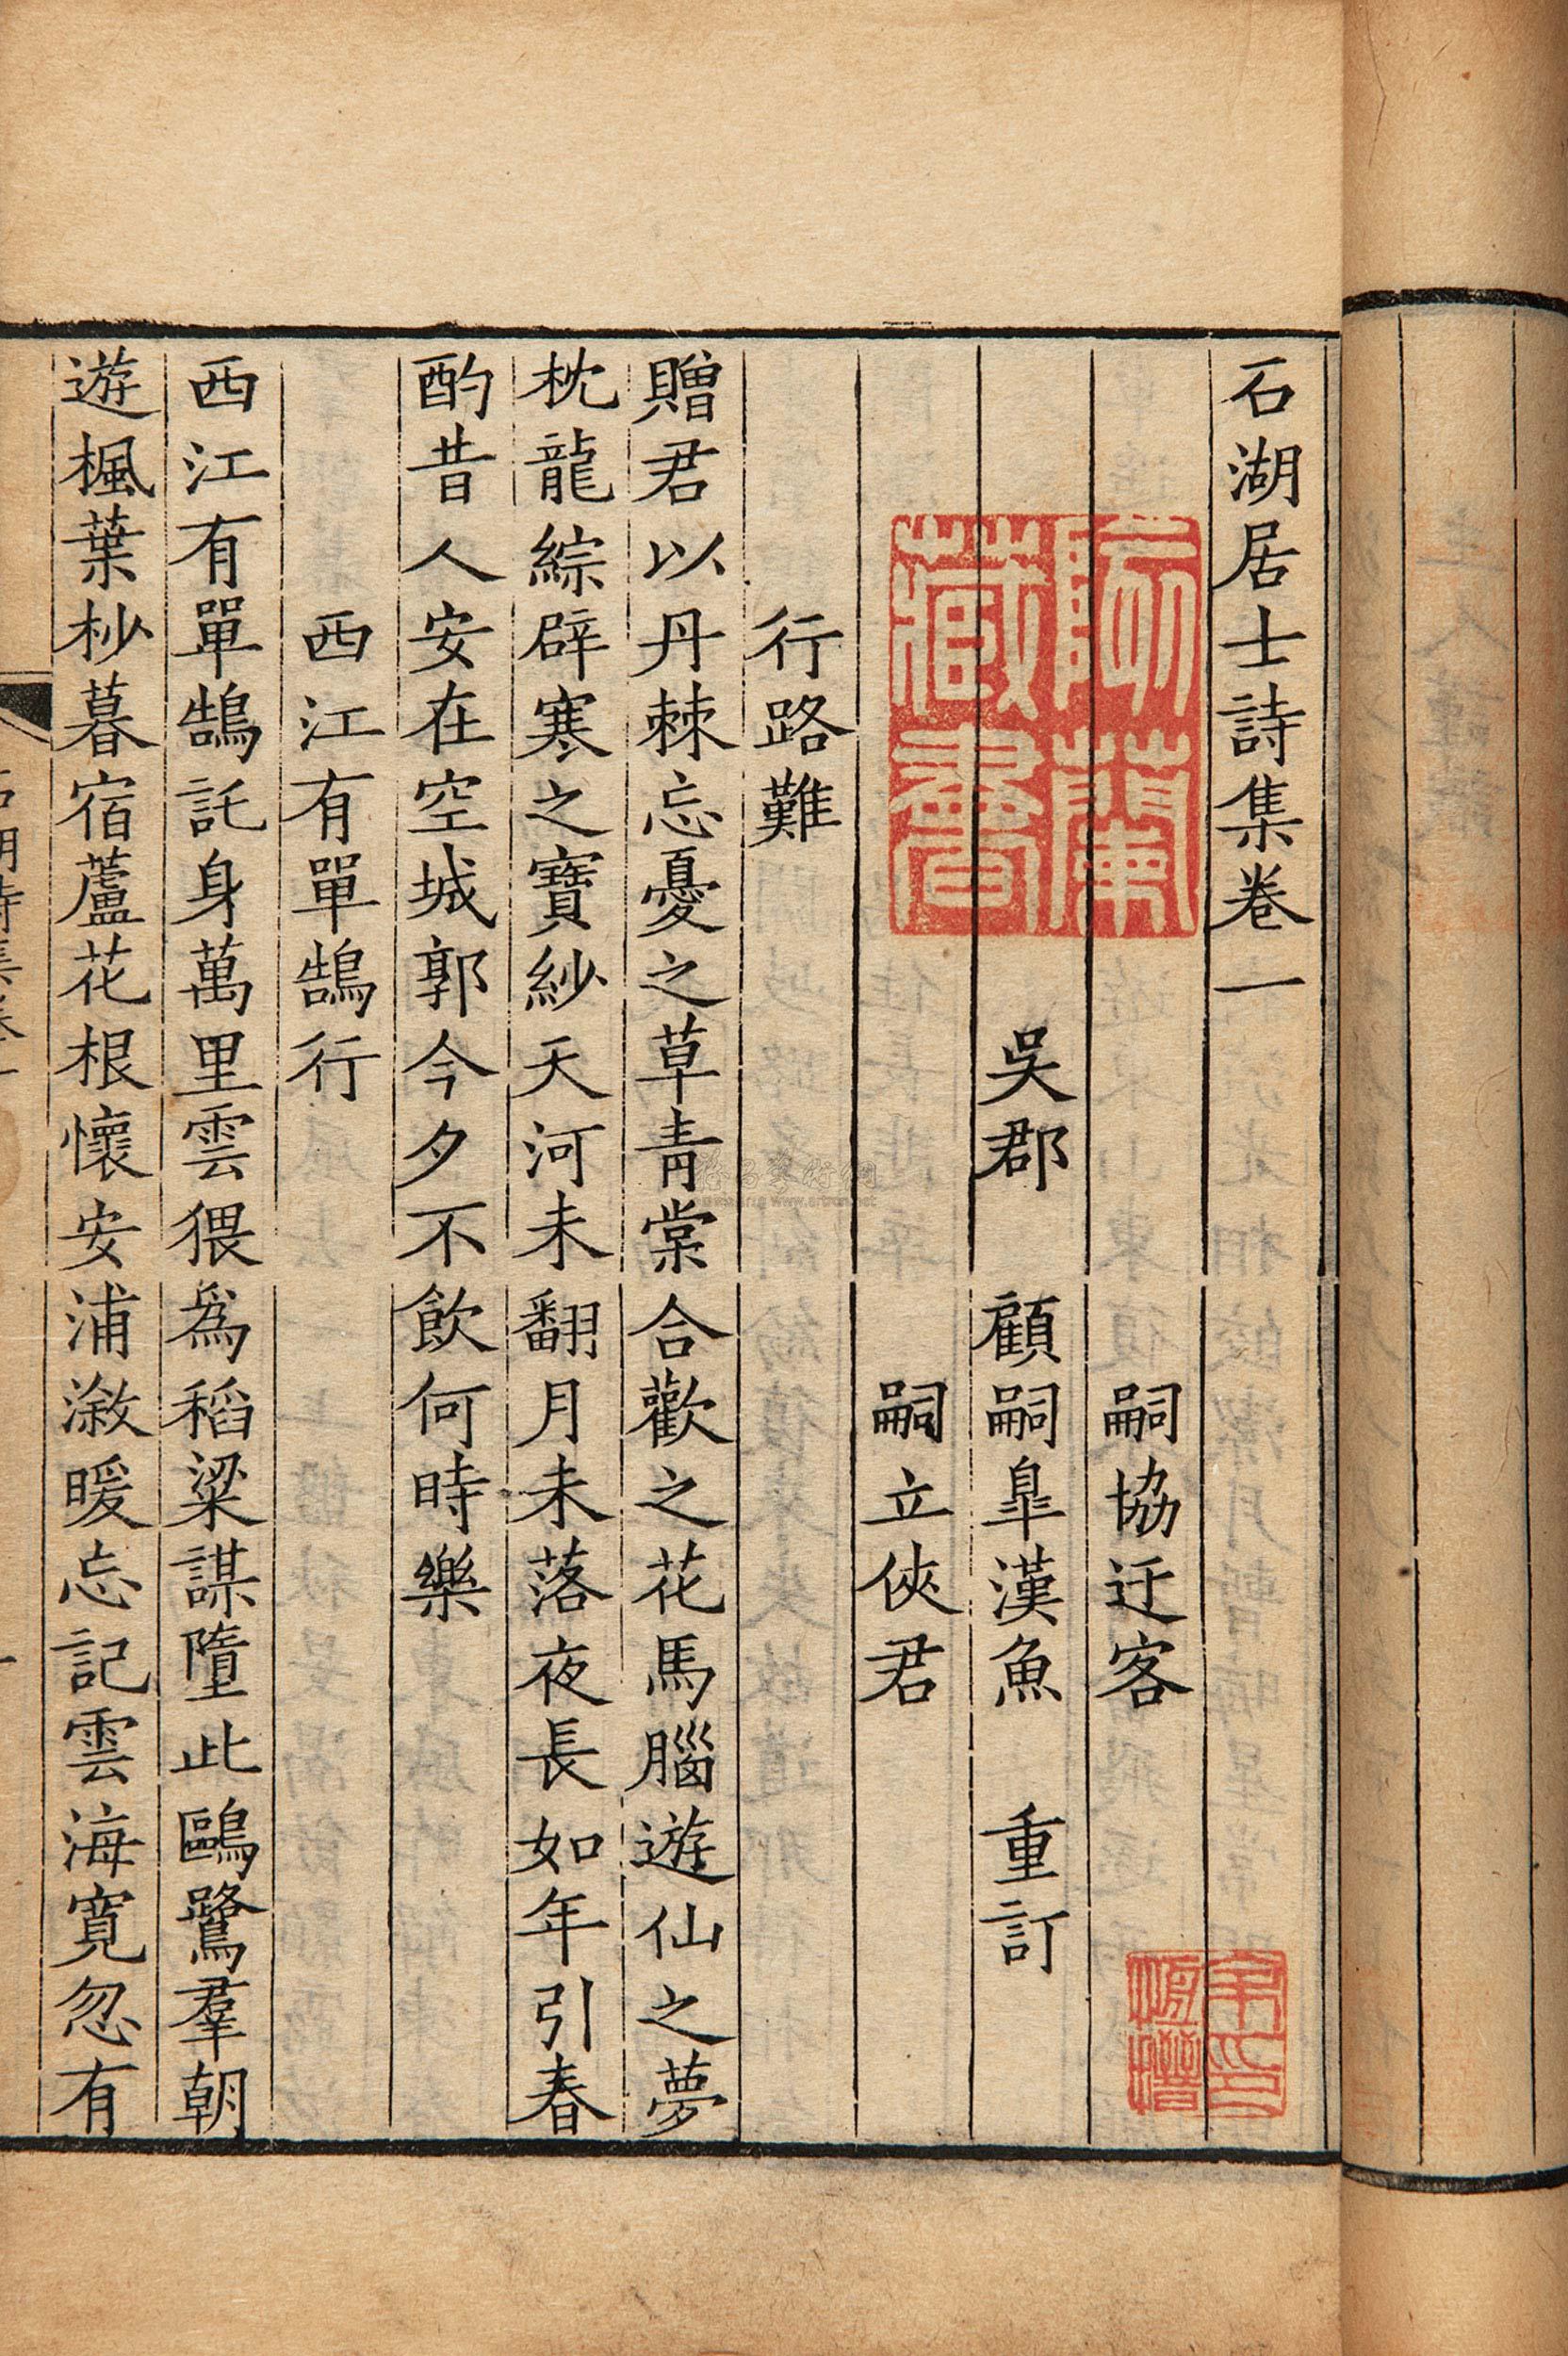 石湖居士詩集卷一
嗣協迂客
吳郡 顧嗣皐漢魚 重訂
嗣立俠君
行路難
贈君以丹棘忘憂之草青棠合歡之花馬腦遊仙之夢
枕龍綜辟寒之寶紗天河未翻月未落夜長如年引春
酌昔人安在空城郭今夕不飲何時樂
西江有單鵠行
西江有單鵠託身萬里雲猥爲稻粱謀墮此鷗鷺羣朝
遊楓葉杪暮宿蘆花根懷安浦漵暖忘記雲海寬忽有